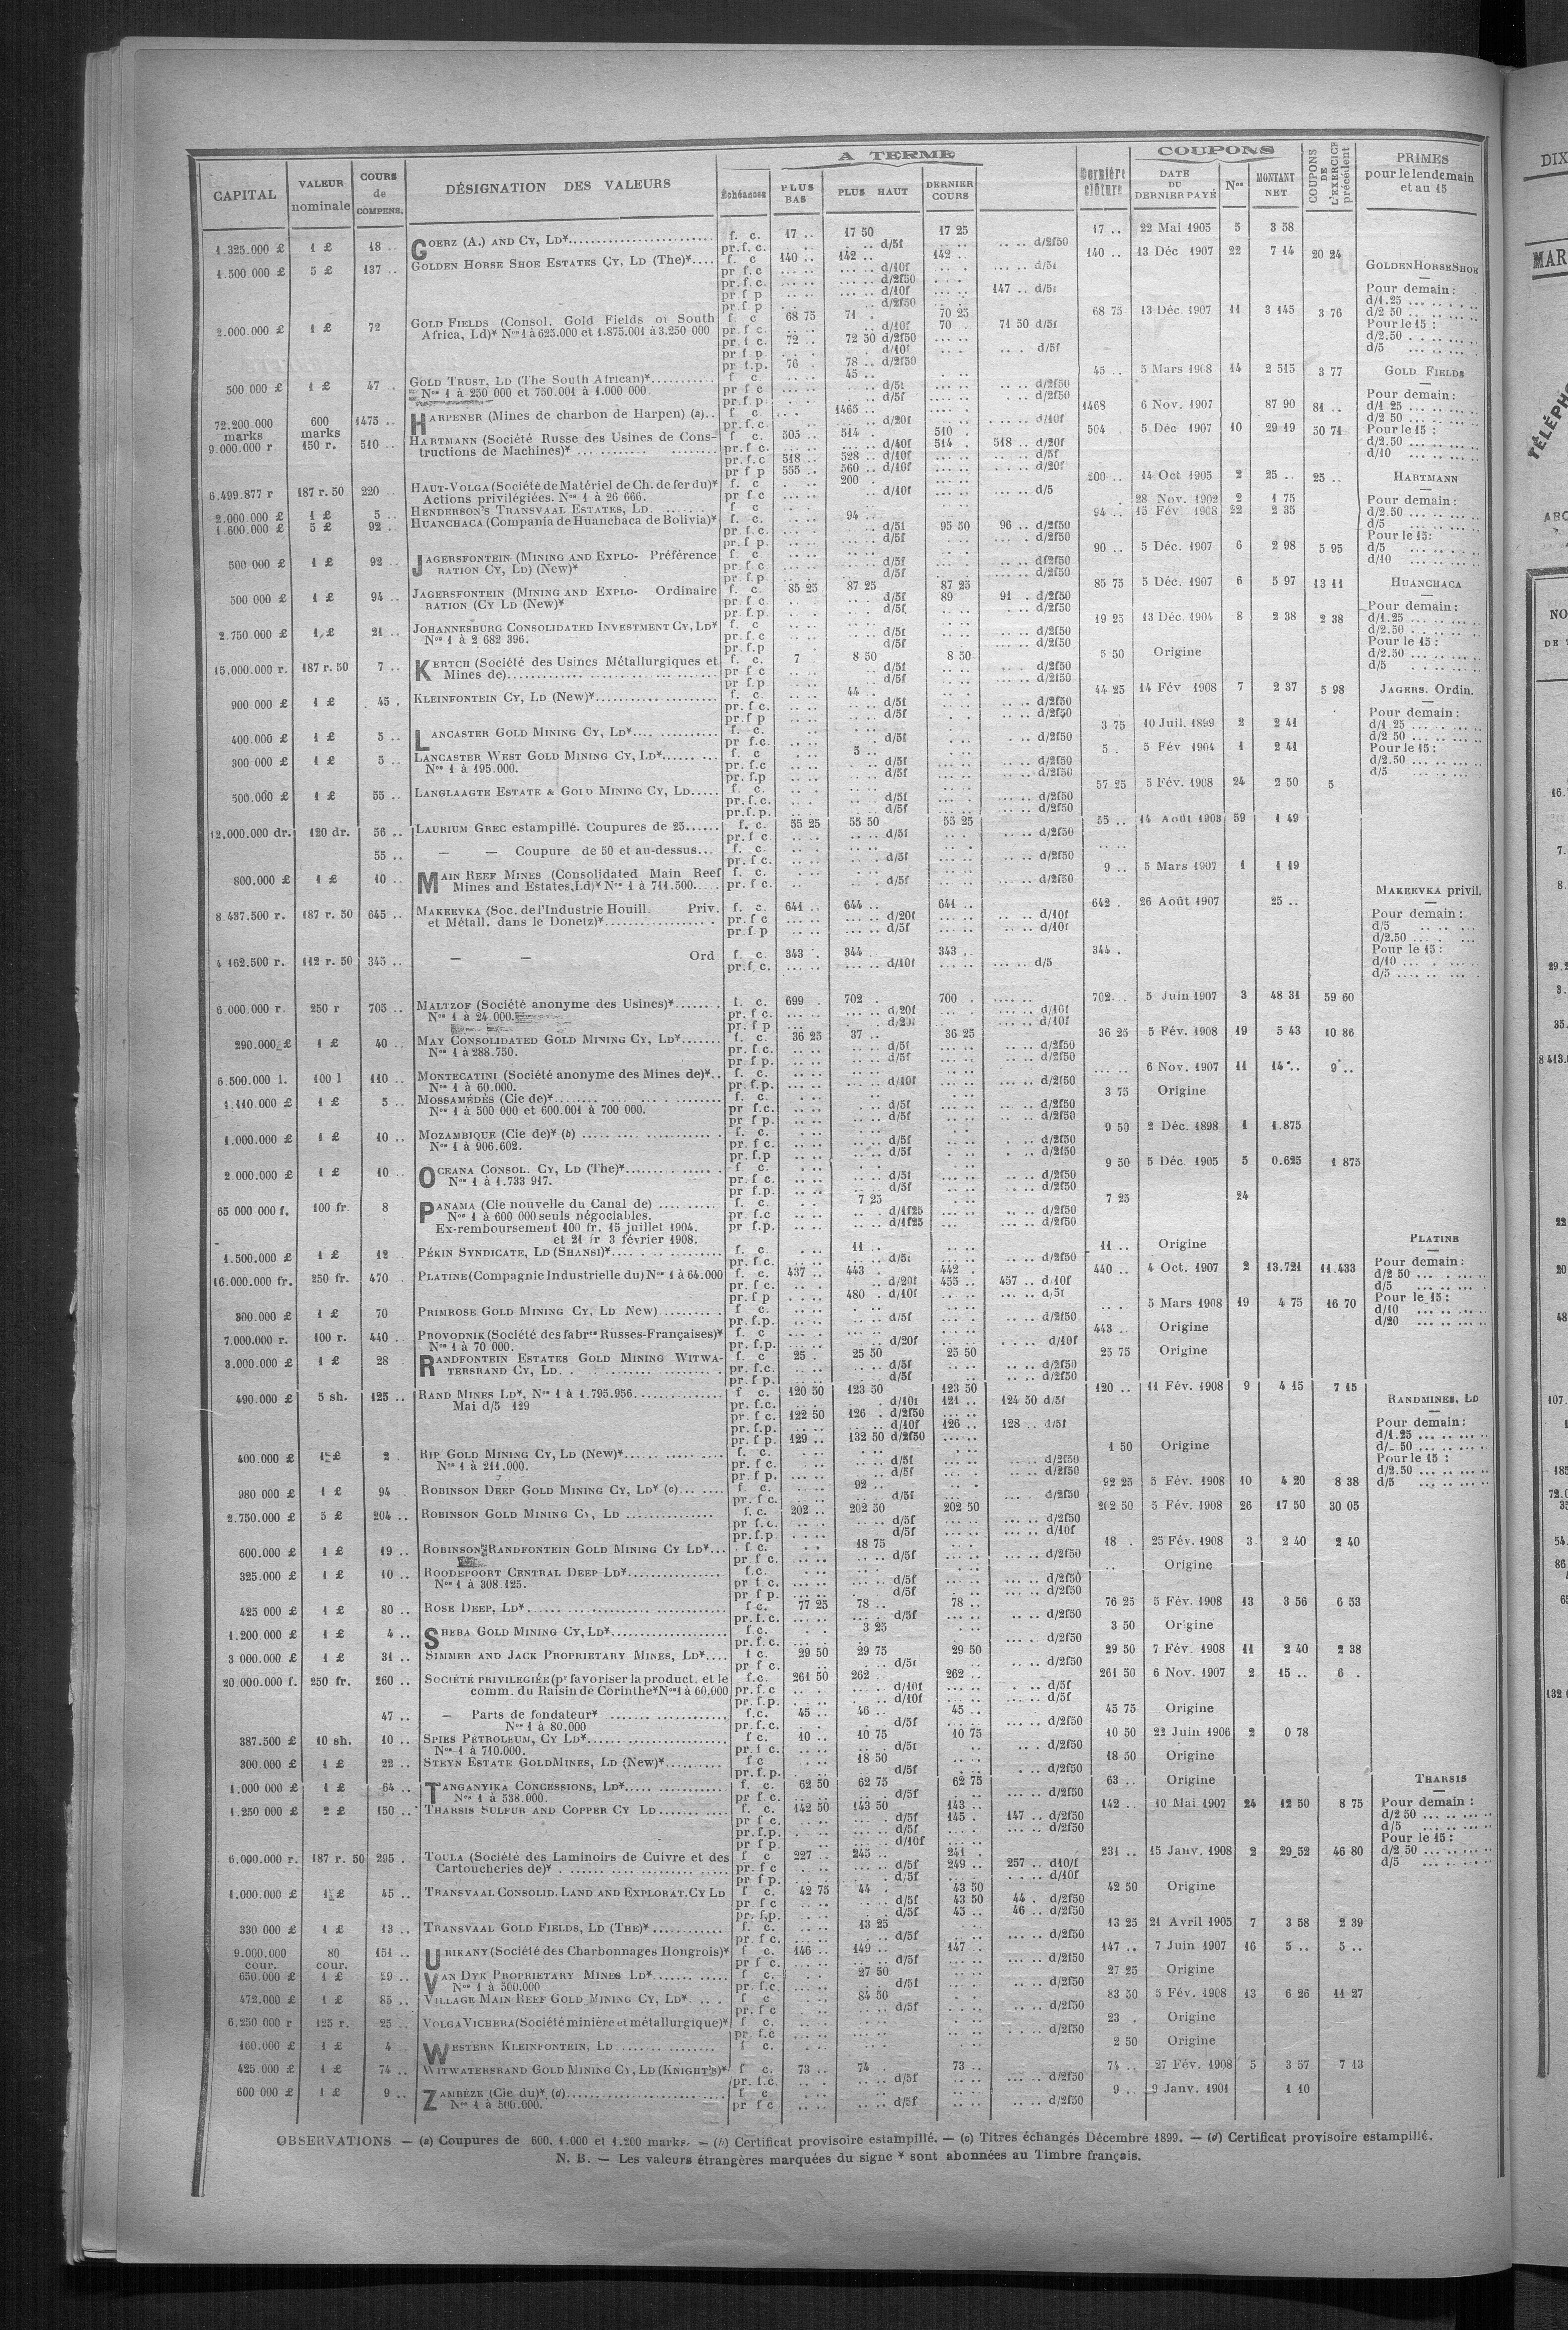 A TERME
COUPONS
CAPITAL VALEUR nominale COURS de COMPENS. DÉSIGNATION DES VALEURS Échéances PLUS BAS PLUS HAUT DERNIER COURS Dernière clôture DATE DU DERNIER PAYÉ Nos MONTANT NET COUPONS DE L'EXERCICE précédent PRIMES pour le lendemain et au 15
1.325.000 £ 1 £ 18 .. GOERZ (A.) AND CY, LD* f. c. 17 .. 17 50 17 25 17 .. 22 Mai 1905 5 3 58
pr. f. c. d/5f d/2f50
1.500 000 £ 5 £ 137 .. GOLDEN HORSE SHOE ESTATES CY, LD (The)* f. c 140 .. 142 .. 142 .. 140 .. 13 Déc 1907 22 7 14 20 24
pr f. c d/10f d/5f
pr. f. c. d/2f50
pr f p d/10f 147 .. d/5f
pr f p d/2f50
2.000.000 £ 1 £ 72 GOLD FIELDS (Consol. Gold Fields of South f c 68 75 71 . 70 25 68 75 13 Déc. 1907 11 3 145 3 76
Africa, Ld)* Nos 1 à 625.000 et 1.875.001 à 3.250 000 pr. f c. d/10f 70 . 71 50 d/5f
pr. f c. 72 .. 72 50 d/2f50
pr f p. d/10f d/5f
pr f.p. 76 . 78 .. d/2f50
500 000 £ 1 £ 47 . GOLD TRUST, LD (The South African)* f c 45 .. 45 .. 5 Mars 1907 14 2 515 3 77
Nos 1 à 250 000 et 750.001 à 1.000 000 pr f c d/5f d/2f50
pr. f. p. d/5f d/2f50
72.200.000 marks 600 marks 1475 .. HARPENER (Mines de charbon de Harpen) (a).. f c. 1465 .. 1468 6 Nov. 1907 87 90 81 ..
pr. f. c. d/20f d/10f
9.000.000 r 150 r. 510 .. HARTMANN (Société Russe des Usines de Cons- f c. 505 .. 514 . 510 . 504 . 5 Déc 1907 10 29 19 50 71
tructions de Machines)* pr. f c. d/40f 514 . 518 .. d/20f
pr. f c 518 .. 528 .. d/10f d/5f
pr f p 555 .. 560 .. d/10f d/20f
6.499.877 r 187 r. 50 220 .. HAUT-VOLGA (Société de Matériel de Ch. de fer du)* f. c 200 . 200 .. 14 Oct 1905 2 25 .. 25 ..
Actions privilégiées. Nos 1 à 26 666. pr f c d/10f d/5
2.000.000 £ 1 £ 5 .. HENDERSON'S TRANSVAAL ESTATES, LD. f c 28 Nov. 1902 2 1 75
1.600.000 £ 5 £ 92 .. HUANCHACA (Compania de Huanchaca de Bolivia)* f. c. 94 .. 94 .. 15 Fév 1908 22 2 35
pr. f c. d/5f 95 50 96 .. d/2f50
pr. f p. d/5f d/2f50
500 000 £ 1 £ 92 .. JAGERSFONTEIN (MINING AND EXPLO- Préférence f c 90 .. 5 Déc. 1907 6 2 98 5 95
RATION CY, LD) (New)* pr f c. d/5f d/2f50
pr. f p. d/5f d/2f50
500 000 £ 1 £ 94 .. JAGERSFONTEIN (MINING AND EXPLO- Ordinaire f. c. 85 25 87 25 87 25 85 75 5 Déc. 1907 6 5 97 13 11
RATION (CY LD (New)* pr. f c. d/5f 89 91 . d/2f50
pr. f p. d/5f. d/2f50
2.750.000 £ 1 £ 21 .. JOHANNESBURG CONSOLIDATED INVESTMENT CY, LD* f. c. 19 25 13 Déc. 1904 8 2 38 2 38
Nos 1 à 2 682 396. pr. f c d/5f d/2f50
pr. f.p d/5f d/2f50
15.000.000 r. 187 r. 50 7 .. KERTCH (Société des Usines Métallurgiques et f. c. 7 8 50 8 50 5 50 Origine
Mines de) pr f c d/5f d/2f50
pr f.p d/5f d/2f50
900 000 £ 1 £ 45 . KLEINFONTEIN CY, LD (New)* f. c. 44 .. 44 25 14 Fév 1908 7 2 37 5 98
pr. f c. d/5f d/2f50
pr. f p d/5f d/2f50
400.000 £ 1 £ 5 .. LANCASTER GOLD MINING CY, LD* f. c. 3 75 10 Juil. 1899 2 2 41
pr f.c. d/5f d/2f50
300 000 £ 1 £ 5 .. LANCASTER WEST GOLD MINING CY, LD* f c 5 .. 5 . 5 Fév 1904 1 2 41
Nos 1 à 195.000. pr. f.c d/5f d/2f50
pr. f.p d/5f d/2f50
500.000 £ 1 £ 55 .. LANGLAAGTE ESTATE & GOLD MINING CY, LD f. c. 57 25 5 Fév. 1908 24 2 50 5
pr. f. c. d/5f d/2f50
pr. f. p. d/5f d/2f50
12.000.000 dr. 120 dr. 56 .. LAURIUM GREC estampillé. Coupures de 25 f. c. 55 25 55 50 55 25 55 .. 14 Août 1903 59 1 49
pr. f c. d/5f d/2f50
55 .. — — Coupure de 50 et au-dessus f. c.
pr. f c. d/5f d/2f50
800.000 £ 1 £ 10 .. MAIN REEF MINES (Consolidated Main Reef f. c. 9 .. 5 Mars 1907 1 1 19
Mines and Estates, Ld)* Nos 1 à 711.500. pr. f c. d/5f d/2f50
8.437.500 r. 187 r. 50 645 .. MAKEEVKA (Soc. de l'Industrie Houill. Priv. f. c. 641 .. 644 .. 641 .. 642 . 26 Août 1907 25 ..
et Métall. dans le Donetz)* pr. f c d/20f d/10f
pr f p d/5f d/10f
4 162.500 r. 112 r. 50 345 .. — — Ord f. c. 343 . 344 343 .. 344 .
pr. f. c. d/10f d/5
6 000.000 r. 250 r 705 .. MALTZOF (Société anonyme des Usines)* f. c. 699 . 702 . 700 . 702 .. 5 Juin 1907 3 48 31 59 60
Nos 1 à 24.000. pr. f c. d/20f d/10f
pr. f p d/20f d/10f
290.000 £ 1 £ 40 .. MAY CONSOLIDATED GOLD MINING CY, LD* f. c. 36 25 37 .. 36 25 36 25 5 Fév. 1908 19 5 43 10 86
Nos 1 à 288.750. pr. f. c. d/5f d/2f50
pr. f p. d/5f d/2f50
6.500.000 l. 100 l 110 .. MONTECATINI (Société anonyme des Mines de)* f. c. 6 Nov. 1907 11 14 .. 9 ..
Nos 1 à 60.000. pr. f.p. d/10f d/2f50
1.110.000 £ 1 £ 5 .. MOSSAMÉDÈS (Cie de)* f. c. 3 75 Origine
Nos 1 à 500 000 et 600.001 à 700 000. pr f.c. d/5f d/2f50
pr f p. d/5f d/2f50
1.000.000 £ 1 £ 10 .. MOZAMBIQUE (Cie de)* (b) f. c. 9 50 2 Déc. 1898 1 1.875
Nos 1 à 906.602. pr. f c. d/5f d/2f50
pr. f.p d/5f d/2f50
2.000.000 £ 1 £ 10 .. OCEANA CONSOL. CY, LD (The)* f c. 9 50 5 Déc. 1905 5 0.625 1 875
Nos 1 à 1.733 917. pr. f c. d/5f d/2f50
pr f.p. d/5f d/2f50
65 000 000 f. 100 fr. 8 PANAMA (Cie nouvelle du Canal de) f. c. 7 25 7 25 24
Nos 1 à 600 000 seuls négociables. pr. f.c d/1f25 d/2f50
Ex-remboursement 100 fr. 15 juillet 1904. pr f.p. d/1f25 d/2f50
et 21 fr 3 février 1908.
1.500.000 £ 1 £ 12 PÉKIN SYNDICATE, LD (SHANSI)* f. c. 11 . 11 .. Origine
pr. f c. d/5f d/2f50
16.000.000 fr. 250 fr. 470 PLATINE (Compagnie Industrielle du) Nos 1 à 64.000 f. c. 437 .. 443 . 442 . 440 .. 4 Oct. 1907 2 13.721 11.433
pr. f c. d/20f 455 .. 457 .. d/10f
pr. f p 480 . d/10f d/5f
300.000 £ 1 £ 70 PRIMROSE GOLD MINING CY, LD New) f c. 5 Mars 1908 19 4 75 16 70
pr. f.p. d/5f d/2f50
7.000.000 r. 100 r. 440 .. PROVODNIK (Société des fabres Russes-Françaises)* f. c 443 .. Origine
Nos 1 à 70 000. pr. f.p. d/20f d/10f
3.000.000 £ 1 £ 28 RANDFONTEIN ESTATES GOLD MINING WITWA- f c 25 . 25 50 25 50 25 75 Origine
TERSRAND CY, LD. pr. f.c. d/5f d/2f50
pr. f p. d/5f d/2f50
490.000 £ 5 sh. 125 .. RAND MINES LD*, Nos 1 à 1.795.956 f c. 120 50 123 50 123 50 120 .. 11 Fév. 1908 9 4 15 7 15
Mai d/5 129 pr. f.c. d/10f 121 .. 124 50 d/5f
pr. f c 122 50 126 . d/2f50
pr. f.p. d/10f 126 .. 128 .. d/5f
pr. f p. 129 .. 132 50 d/2f50
400.000 £ 1 £ 2 RIP GOLD MINING CY, LD (New)* f. c. 1 50 Origine
Nos 1 à 211.000. pr. f c. d/5f d/2f50
pr. f p. d/5f d/2f50
980 000 £ 1 £ 94 ROBINSON DEEP GOLD MINING CY, LD* (c) f c 92 .. 92 25 5 Fév. 1908 10 4 20 8 38
pr. f c. d/5f d/2f50
2.750.000 £ 5 £ 204 .. ROBINSON GOLD MINING CY, LD f. c. 202 .. 202 50 202 50 202 50 5 Fév. 1908 26 17 50 30 05
pr f.c. d/5f d/2f50
pr. f.p. d/5f d/10f
600.000 £ 1 £ 19 .. ROBINSON RANDFONTEIN GOLD MINING CY LD* f. c. 18 75 18 . 25 Fév. 1908 3 2 40 2 40
pr f c. d/5f d/2f50
325.000 £ 1 £ 10 .. ROODEPOORT CENTRAL DEEP LD* f.c. Origine
Nos 1 à 308.125. pr f.c. d/5f d/2f50
pr f p. d/5f d/2f50
425 000 £ 1 £ 80 .. ROSE DEEP, LD* f c. 77 25 78 .. 78 .. 76 25 5 Fév. 1908 13 3 56 6 53
pr. f.c. d/5f d/2f50
1.200 000 £ 1 £ 4 .. SHEBA GOLD MINING CY, LD* f.c. 3 25 3 50 Origine
pr. f. c. d/2f50
3 000.000 £ 1 £ 31 .. SIMMER AND JACK PROPRIETARY MINES, LD* f c. 29 50 29 75 29 50 29 50 7 Fév. 1908 11 2 40 2 38
pr f c. d/5f d/2f50
20.000.000 f. 250 fr. 260 .. SOCIÉTÉ PRIVILEGIÉE (pr favoriser la product. et le f.c. 261 50 262 .. 262 .. 261 50 6 Nov. 1907 2 15 .. 6 .
comm. du Raisin de Corinthe* Nos 1 à 60.000 pr. f.c d/10f d/5f
pr. f.p. d/10f d/5f
47 .. — Parts de fondateur* f.c. 45 .. 46 .. 45 .. 45 75 Origine
Nos 1 à 80.000 pr. f.c. d/5f d/2f50
387.500 £ 10 sh. 10 .. SPIES PETROLEUM, CY LD* f c. 10 .. 10 75 10 75 10 50 22 Juin 1906 2 0 78
Nos 1 à 710.000. pr. f c. d/5f d/2f50
300.000 £ 1 £ 22 .. STEYN ESTATE GOLD MINES, LD (New)* f c 18 50 18 50 Origine
pr. f.p. d/5f d/2f50
1.000 000 £ 1 £ 64 .. TANGANYIKA CONCESSIONS, LD* f. c. 62 50 62 75 62 75 63 .. Origine
Nos 1 à 538.000. pr f c. d/5f d/2f50
1.250 000 £ 2 £ 150 .. THARSIS SULFUR AND COPPER CY LD f. c. 142 50 143 50 143 .. 142 .. 10 Mai 1907 24 12 50 8 75
pr f c. d/5f 145 . 147 .. d/2f50
pr. f.p. d/5f d/2f50
pr f p. d/10f
6.000.000 r. 187 r. 50 295 . TOULA (Société des Laminoirs de Cuivre et des f c 227 .. 245 .. 241 . 231 .. 15 Janv. 1908 2 29 52 46 80
Cartoucheries de)* pr. f c d/5f 249 .. 257 .. d10/f
pr f p. d/5f d/10f
1.000.000 £ 1 £ 45 .. TRANSVAAL CONSOLID. LAND AND EXPLORAT. CY LD f c. 42 75 44 . 43 50 42 50 Origine
pr f c d/5f 43 50 44 . d/2f50
pr. f.p. d/5f 45 .. 46 .. d/2f50
330 000 £ 1 £ 13 .. TRANSVAAL GOLD FIELDS, LD (THE)* f. c. 13 25 13 25 21 Avril 1905 7 3 58 2 39
pr. f c. d/5f d/2f50
9.000.000 cour. 80 cour. 151 .. URIKANY (Société des Charbonnages Hongrois)* f c. 146 .. 149 .. 147 . 147 .. 7 Juin 1907 16 5 .. 5 ..
pr f c. d/5f d/2f50
650.000 £ 1 £ 29 .. VAN DYK PROPRIETARY MINES LD* f c. 27 50 27 25 Origine
Nos 1 à 500.000 pr. f.c. d/5f d/2f50
472.000 £ 1 £ 85 .. VILLAGE MAIN REEF GOLD MINING CY, LD* f c 84 50 83 50 5 Fév. 1908 13 6 26 11 27
pr. f c d/5f d/2f50
6.250 000 r 125 r. 25 .. VOLGA VICHERA (Société minière et métallurgique)* f c. 23 . Origine
pr. f.c d/2f50
100.000 £ 1 £ 4 WESTERN KLEINFONTEIN, LD f c. 2 50 Origine
425.000 £ 1 £ 74 .. WITWATERSRAND GOLD MINING CY, LD (KNIGHT'S)* f c. 73 .. 74 .. 73 .. 74 .. 27 Fév. 1908 5 3 57 7 13
pr. f.c. d/5f d/2f50
600 000 £ 1 £ 9 .. ZAMBÈZE (Cie du)*. (d) f c 9 .. 9 Janv. 1901 1 10
Nos 1 à 500.000. pr f c d/5f d/2f50
GOLDEN HORSE SHOE
Pour demain:
d/1.25
d/2 50
Pour le 15 :
d/2.50
d/5
GOLD FIELDS
Pour demain:
d/1 25
d/2 50
Pour le 15 :
d/2.50
d/10
HARTMANN
Pour demain:
d/2.50
d/5
Pour le 15:
d/5
d/10
HUANCHACA
Pour demain:
d/1.25
d/2.50
Pour le 15 :
d/2.50
d/5
JAGERS. Ordin.
Pour demain:
d/1 25
d/2 50
Pour le 15 :
d/2.50
d/5
MAKEEVKA privil.
Pour demain:
d/5
d/2.50
Pour le 15 :
d/10
d/5
PLATINE
Pour demain:
d/2 50
d/5
Pour le 15 :
d/10
d/20
RANDMINES, LD
Pour demain:
d/1.25
Pour le 15 :
d/2.50
d/5
THARSIS
Pour demain :
d/2 50
d/5
Pour le 15 :
d/2 50
d/5
OBSERVATIONS — (a) Coupures de 600. 1.000 et 1.200 marks. — (b) Certificat provisoire estampillé. — (c) Titres échangés Décembre 1899. — (d) Certificat provisoire estampillé.
N. B. — Les valeurs étrangères marquées du signe * sont abonnées au Timbre français.
DIX
MAR
TÉLÉPHO
ABO
NO